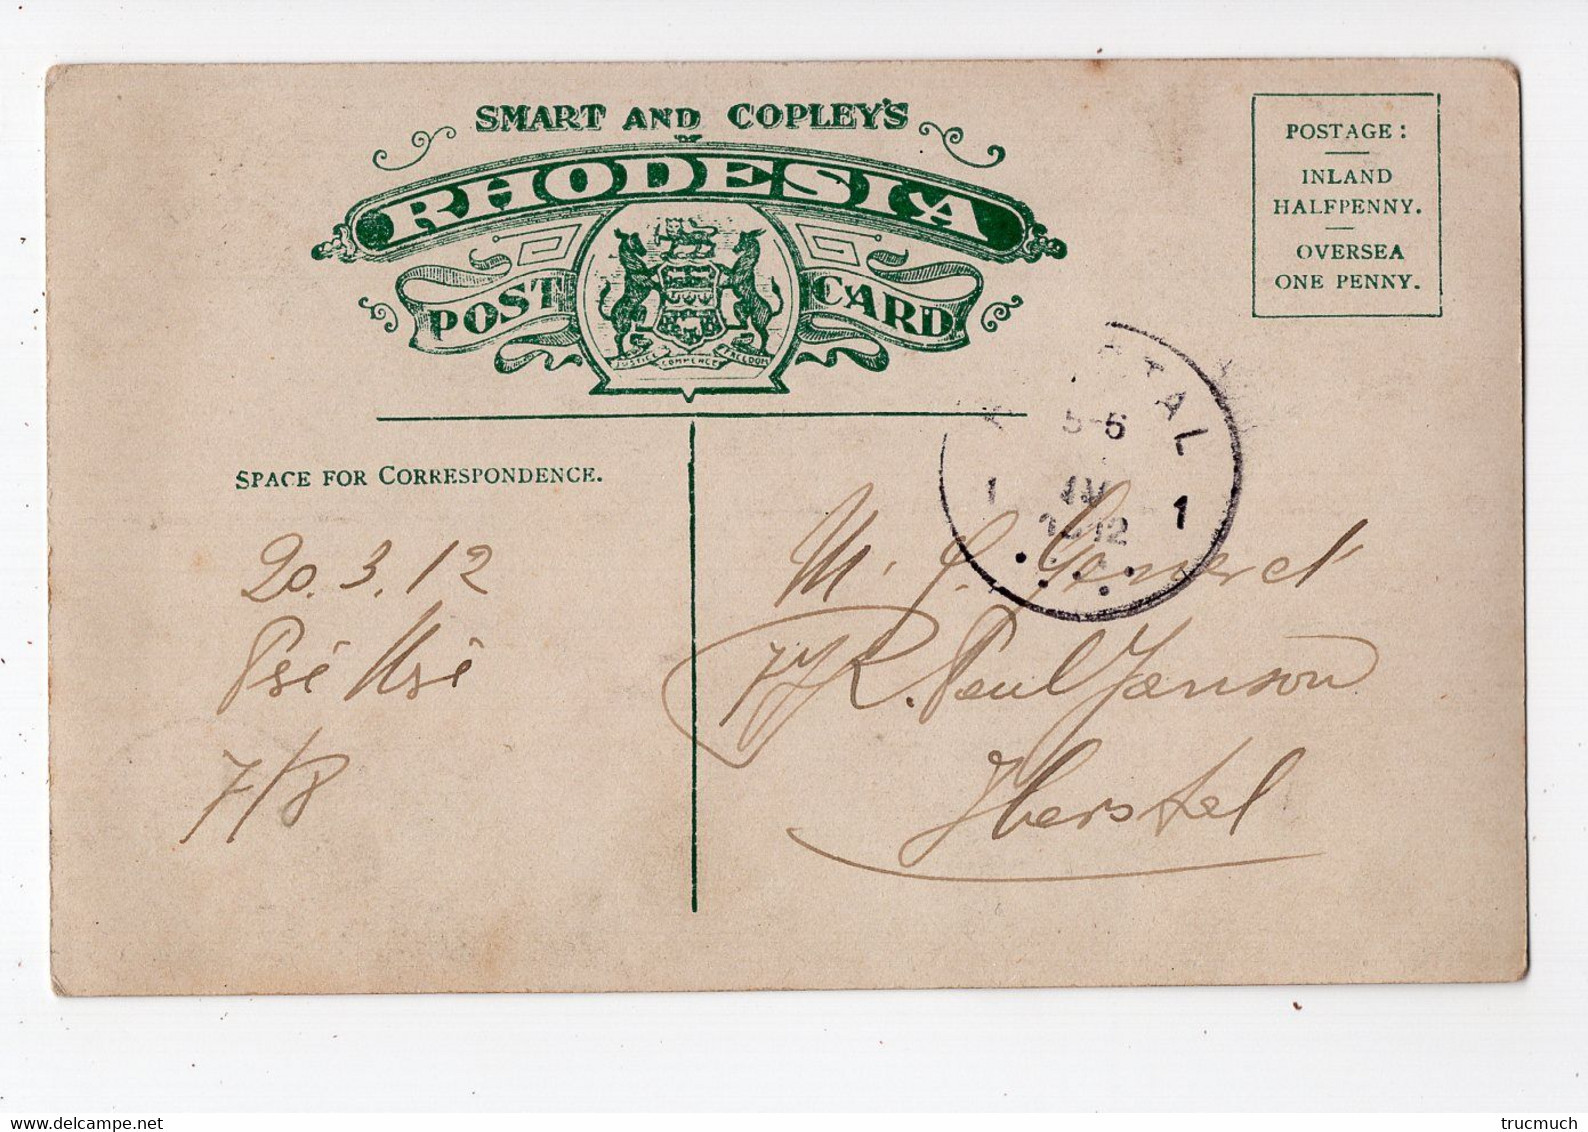 SMART AND COPLEY'S
RHODESIA
POST CARD
JUSTICE COMMERCE FREEDOM
POSTAGE:
INLAND
HALFPENNY.
OVERSEA
ONE PENNY.
5-6
1 IV 1
1912
SPACE FOR CORRESPONDENCE.
20.3.12
7/8
M.
77 R. Paul Janson
Herstal
www.delcampe.net
trucmuch